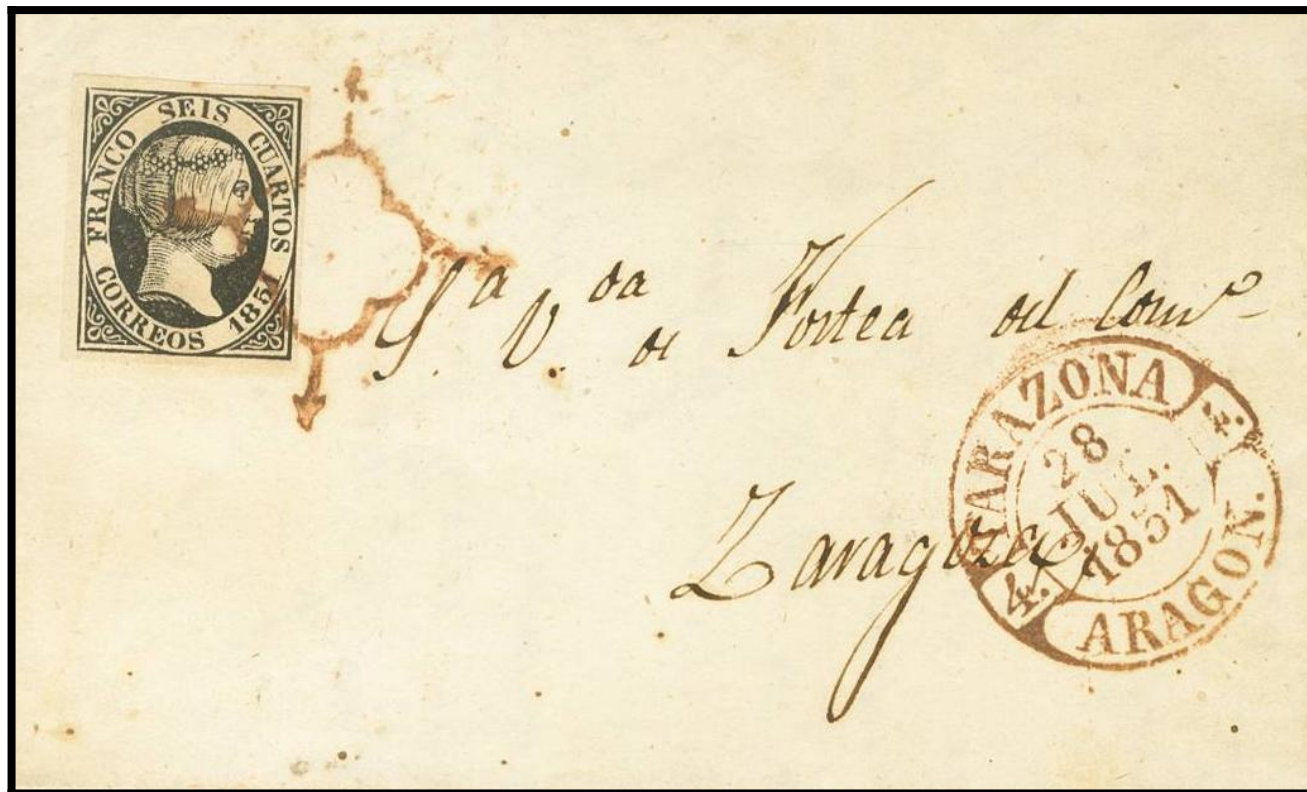 FRANCO SEIS CUARTOS
CORREOS 1851
S.ª V.da de Fortea del Comº
Zaragoza
TARAZONA
28
JUL.
1851
4.
4.
ARAGON.